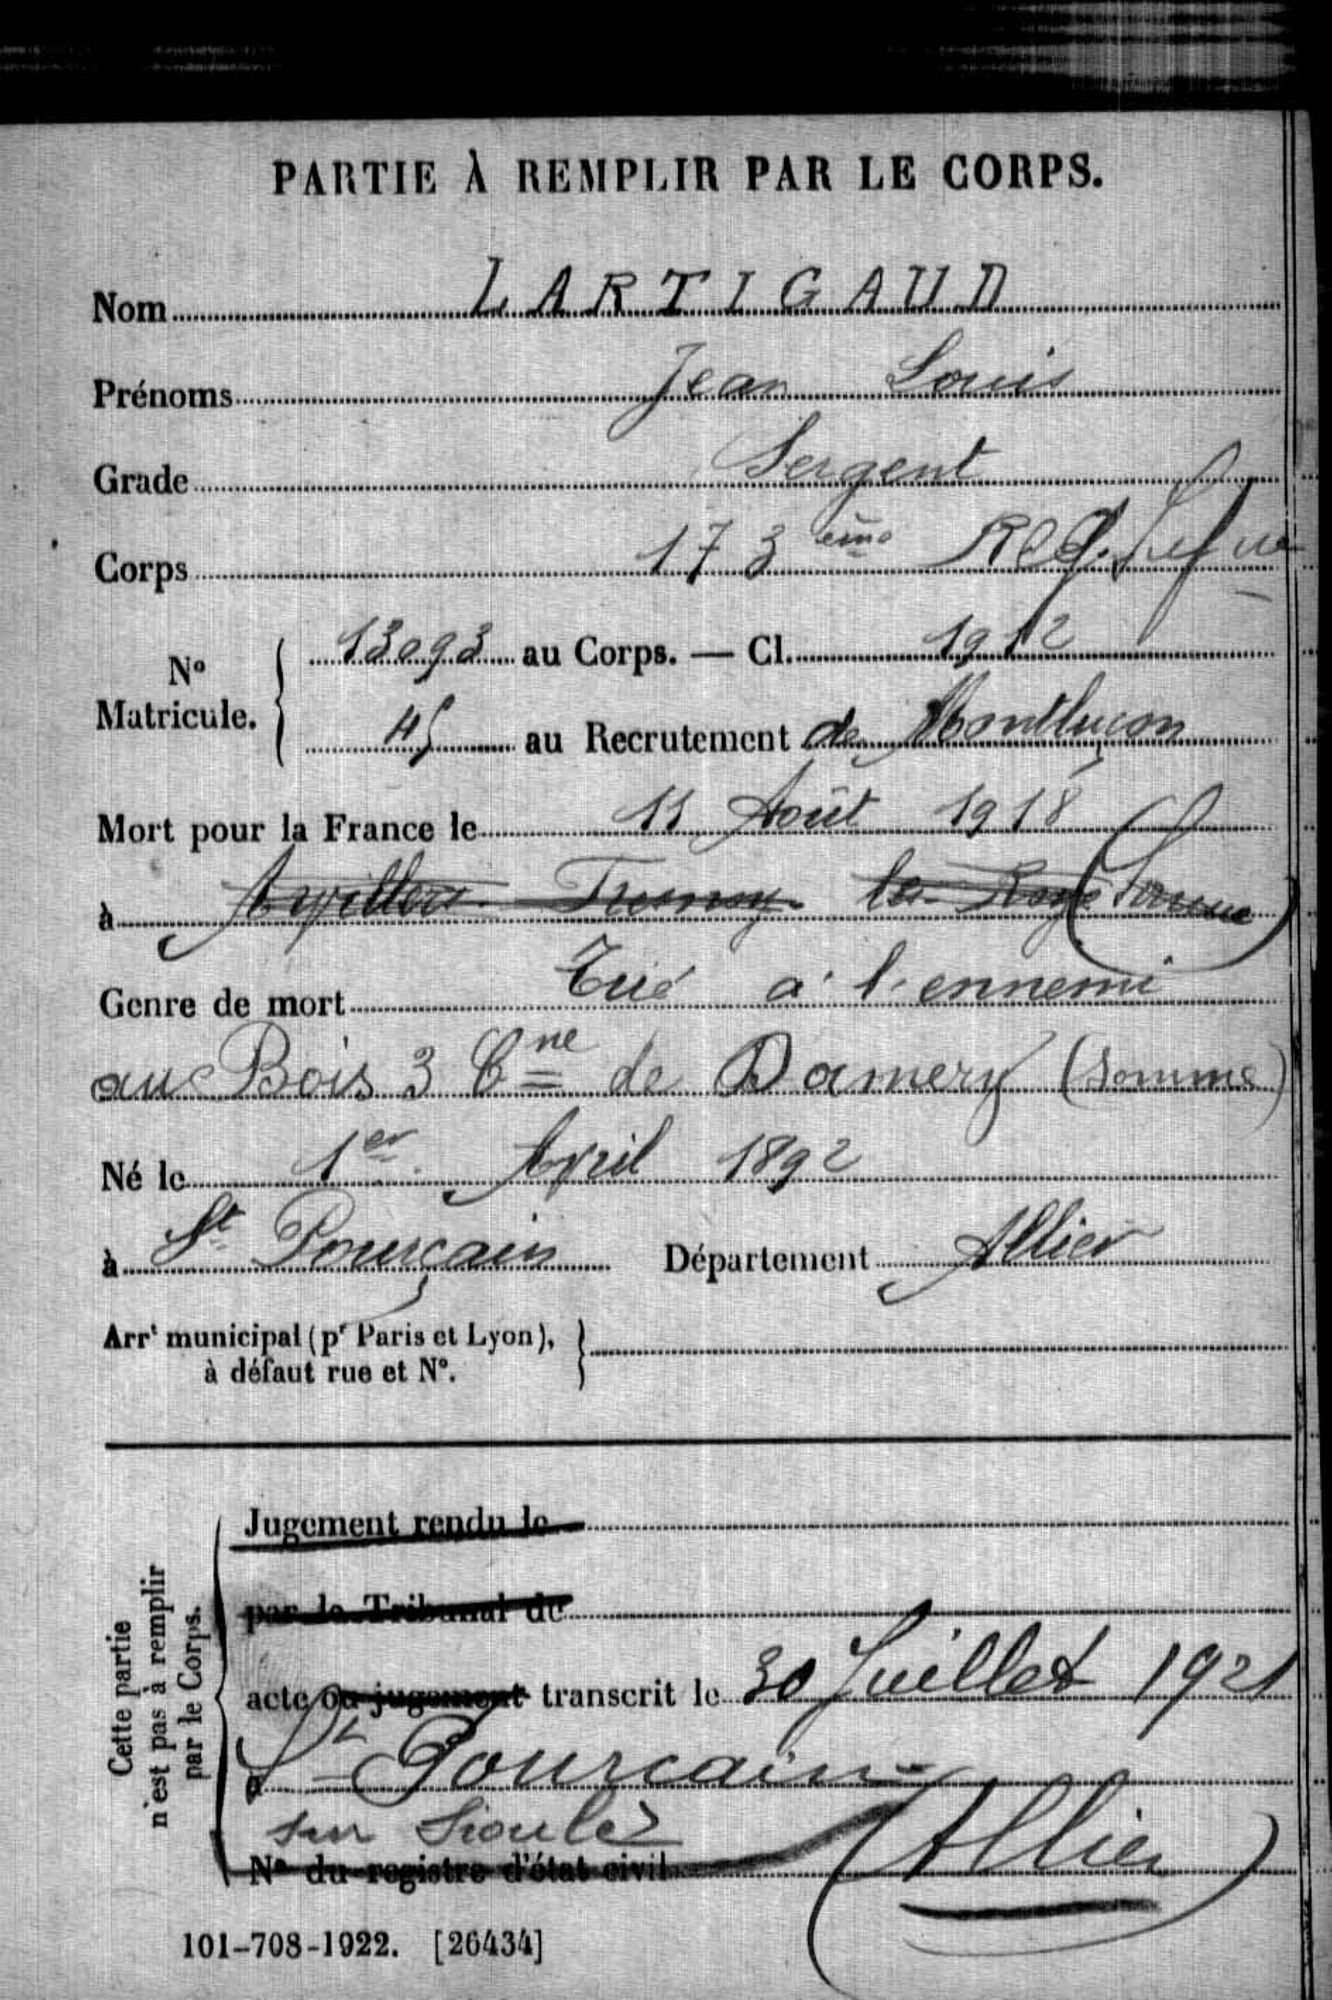 PARTIE À REMPLIR PAR LE CORPS.
Nom LARTIGAUD
Prénoms Jean Louis
Grade Sergent
Corps 173 ème Reg.
Nº Matricule. 13093 au Corps. — Cl. 1912
45 au Recrutement de Montluçon
Mort pour la France le 11 Août 1918
à Arvillers Fresnoy les Roye (Somme)
Genre de mort Tué à l'ennemi
au Bois 3 Cne de Damery (Somme)
Né le 1er Avril 1892
à St Pourçain Département Allier
Arrt municipal (pr Paris et Lyon),
à défaut rue et Nº.
Cette partie
n'est pas à remplir
par le Corps.
Jugement rendu le
par le Tribunal de
acte ou jugement transcrit le 30 Juillet 1921
à St Pourcain
sur Sioule (Allier)
Nº du registre d'état civil
101-708-1922. [26434]